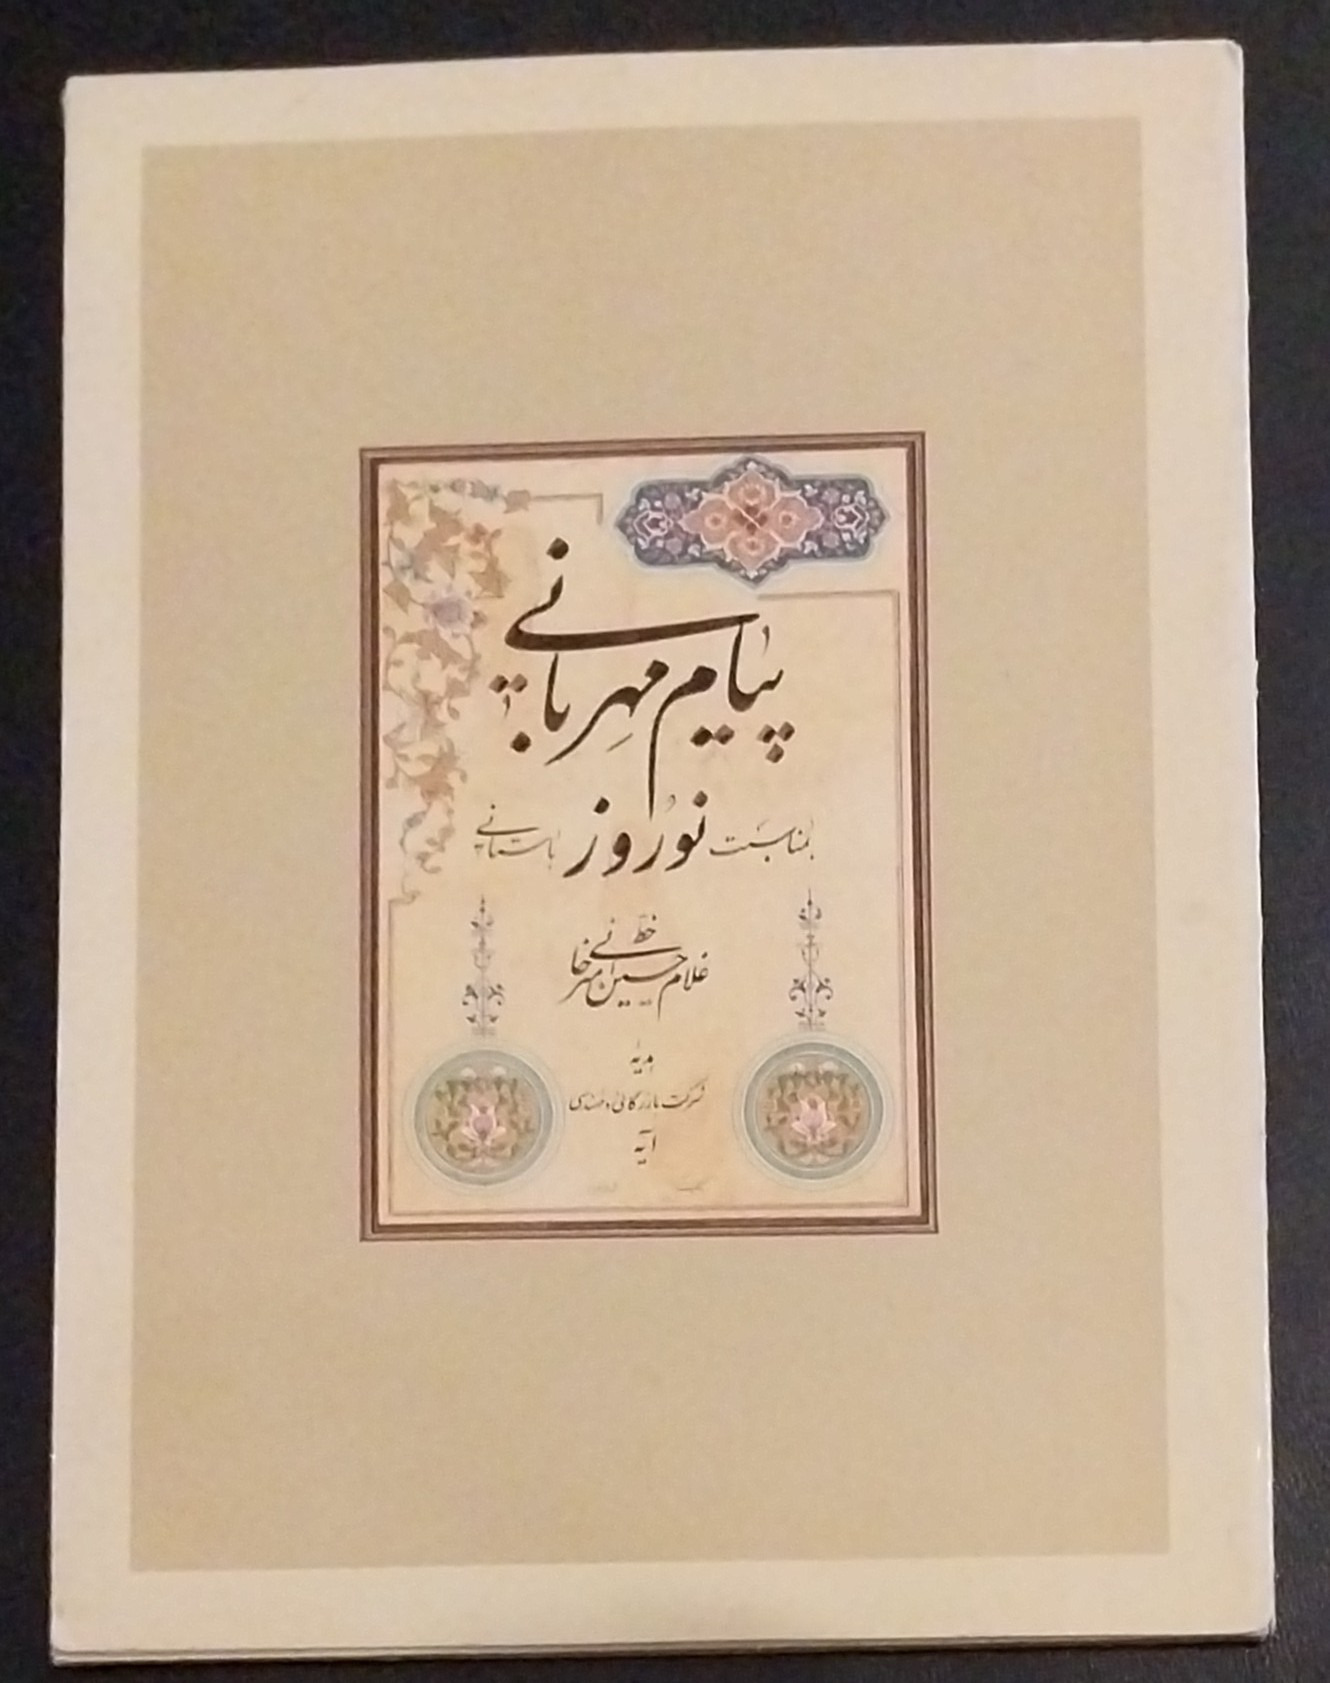 پیام مهربانی
بمناسبت نوروز باستانی
خط
غلامحسین امیرخانی
هدیه
شرکت بازرگانی و مهندسی
آیه